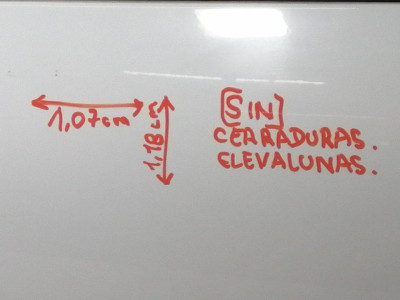 1,07cm
1,18cm
[SIN]
CERRADURAS.
ELEVALUNAS.